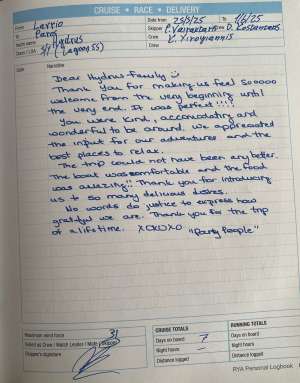 CRUISE • RACE • DELIVERY
From Lavrio
Date from 25/5/25 To 1/6/25
To Paros
Skipper P. Vairaktaris D. Kostantaras
Yacht name S/Y Hydrus
Crew K. Xirogiannis
(Lagoon 55)
Crew
Date
Narrative
Dear Hydrus family
Thank you for making us feel sooooo
welcome from the very beginning until
the very end. It was perfect!!!!
You were kind, accomodating and
wonderful to be around, we appreciated
the input for our adventures and the
best places to relax.
The trip could not have been any better.
The boat was comfortable and the food
was amazing!! Thank you for introducing
us to so many delicious dishes.
No words do justice to express how
grateful we are. Thank you for the trip
of a lifetime. XOXOXO "Party People"
Maximum wind force
CRUISE TOTALS
RUNNING TOTALS
Sailed as Crew / Watch Leader / Mate / Skipper
Days on board 7
Days on board
Skipper's signature
Night hours
Night hours
Distance logged
Distance logged
RYA Personal Logbook